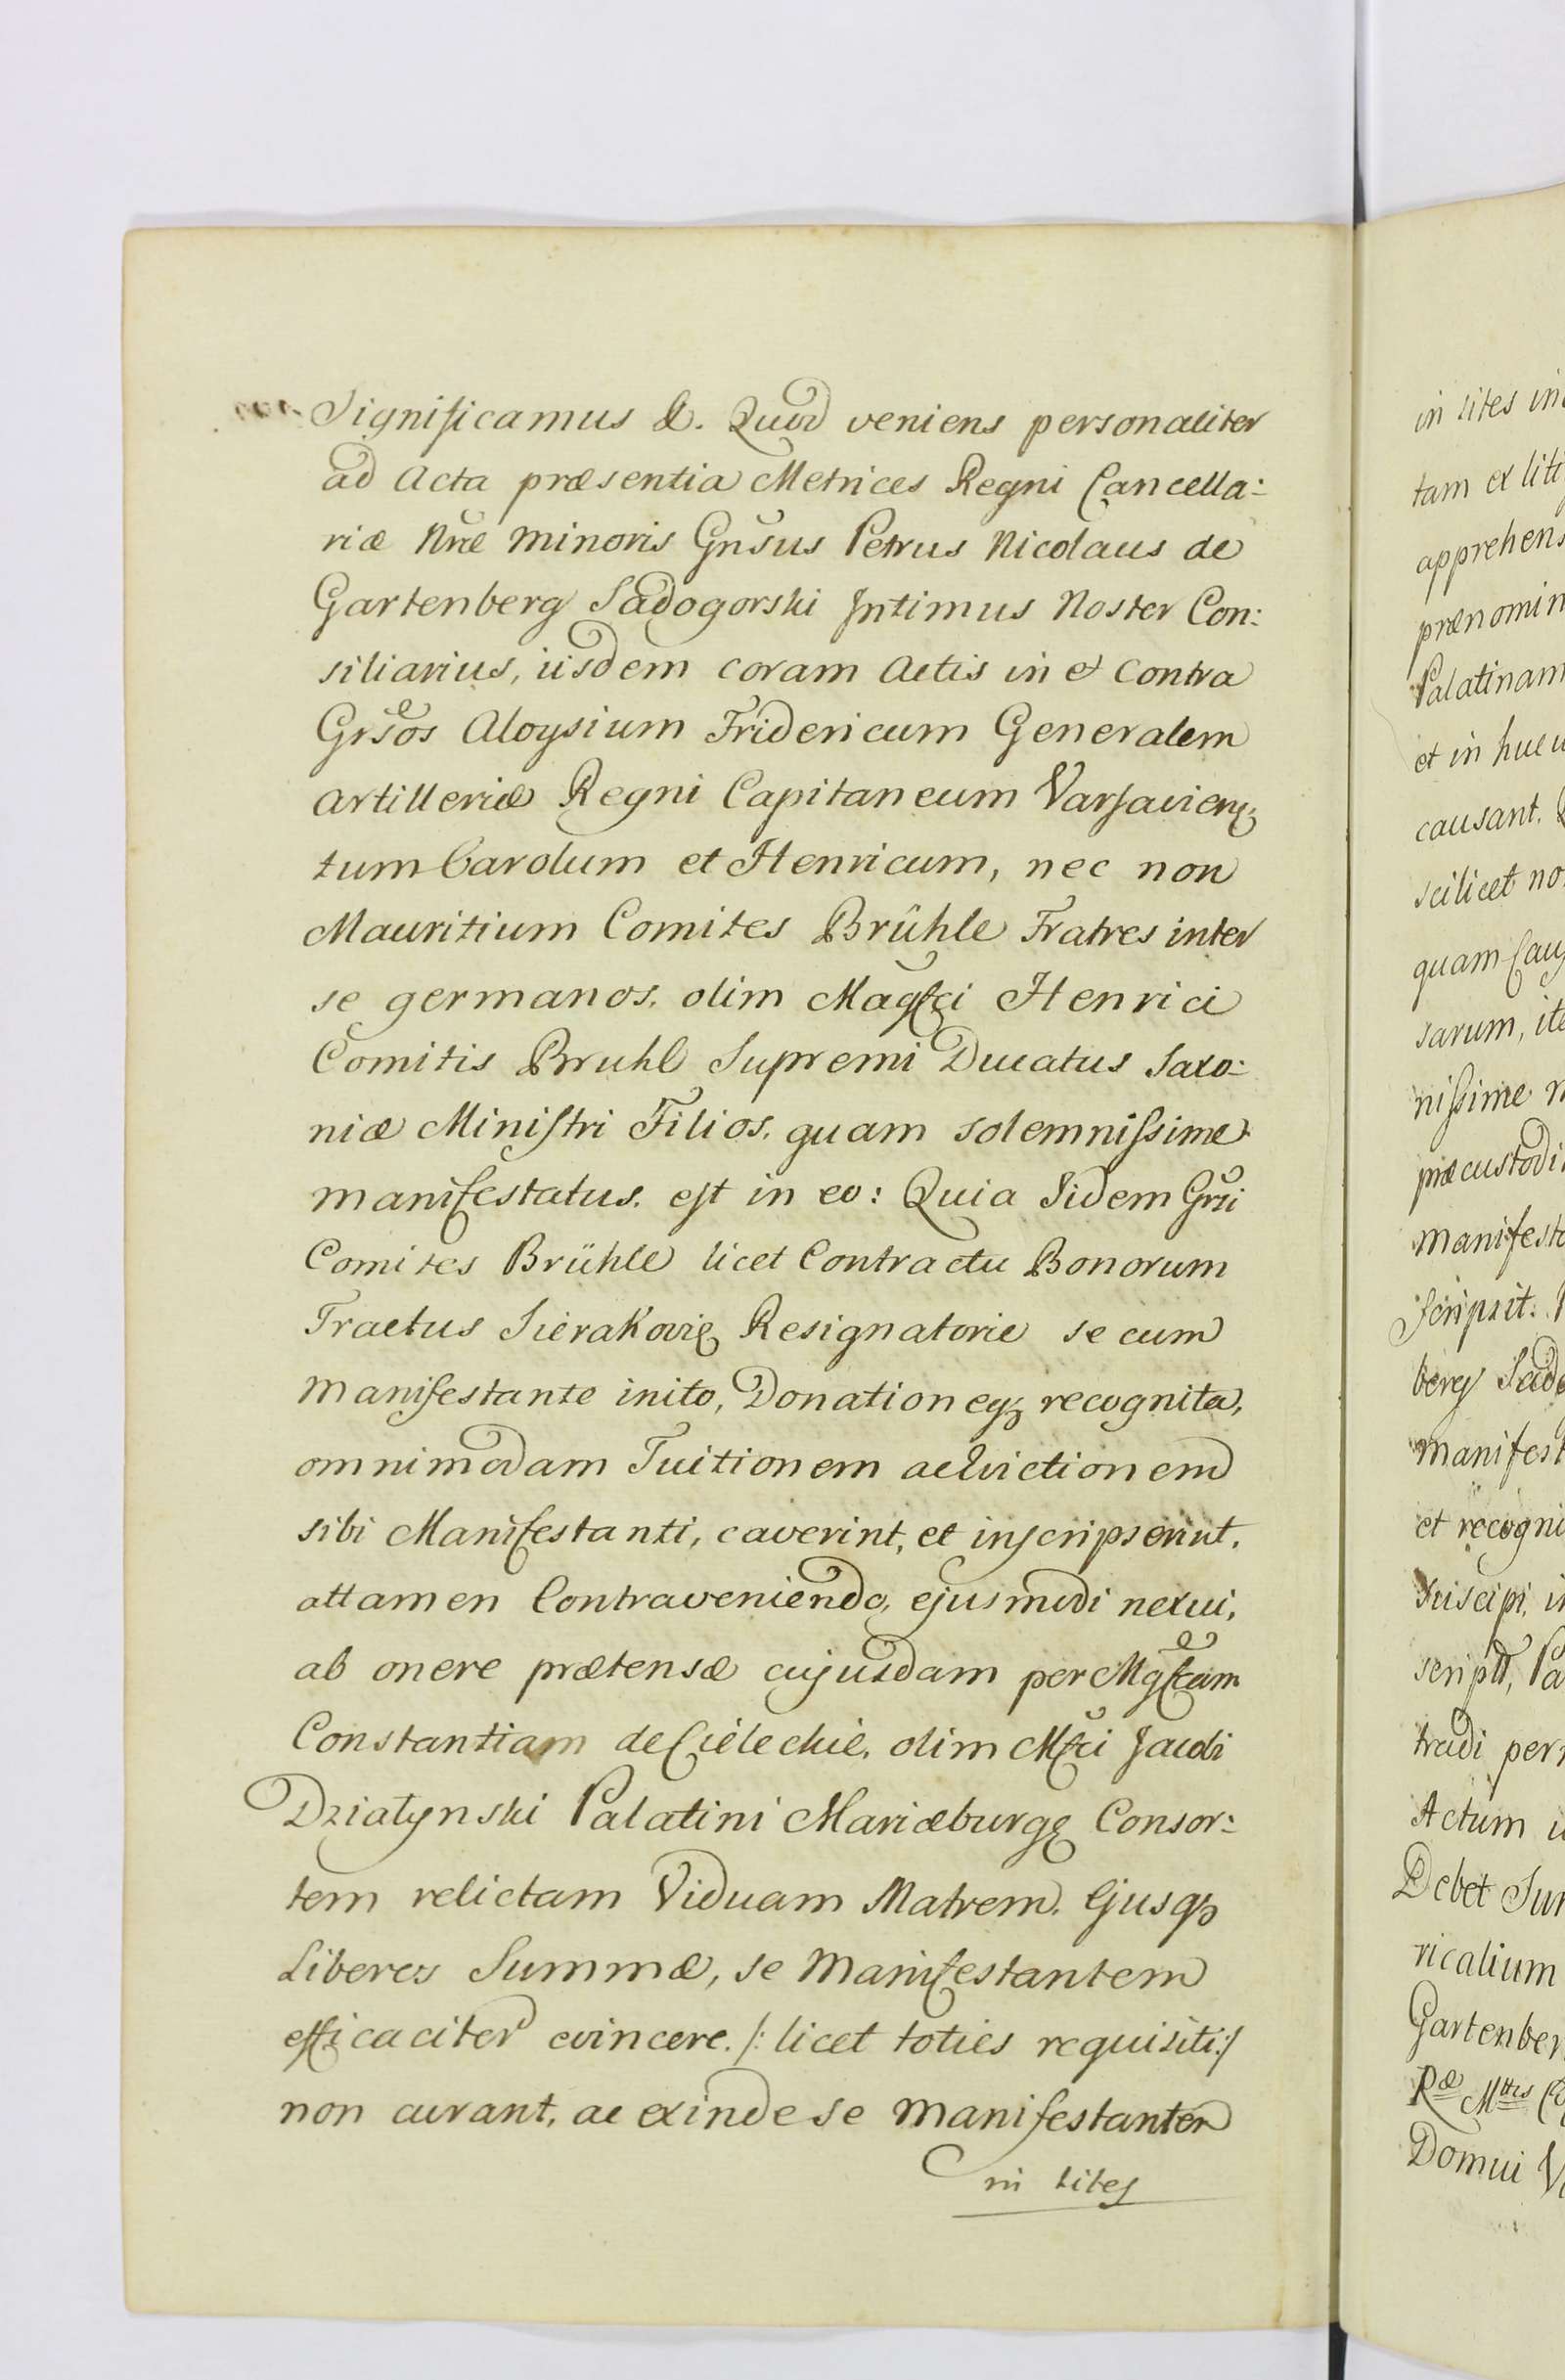 Significamus &. Quod veniens personaliter
ad Acta præsentia Metrices Regni Cancella:
riæ Nræ Minoris Gnsus Petrus Nicolaus de
Gartenberg Sadogorski Intimus Noster Con:
siliarius, iisdem coram Actis in et contra
Grsos Aloysium Fridericum Generalem
Artilleriæ Regni Capitaneum Varsavien
tum Carolum et Henricum, nec non
Mauritium Comites Brühle Fratres inter
se germanos. olim Magfci Henrici
Comitis Bruhl Supremi Ducatus Saxo:
niæ Ministri Filios. quam solemnissime
manifestatus. est in eo: Quia Iidem Grsi
Comites Brühle licet Contractu Bonorum
Tractus Sierakovię Resignatorie se cum
Manifestante inito, Donationeq; recognita,
omnimodam Tuitionem ac Evictionem
sibi Manifestanti, caverint, et inscripserint.
attamen Contraveniendo, ejusmodi nexui,
ab onere prætensæ cujusdam per Mgfcam
Constantiam de Cielechie, olim Mfci Jacobi
Dziatynski Palatini Mariæburgę Consor:
tem relictam Viduam Matrem. Ejusq;
Liberos Summæ, se Manifestantem
efficaciter evincere. /: licet toties requisiti :/
non curant, ac exinde se Manifestantem
in lites
in lites
tam ex
apprehens
prænomin
Palatinam
et in
causant.
scilicet no
quam
sarum,
nissime
præcustodi
manifest
scripsit.
berg Sado
manifest
et recogni
suscipi,
script,
tradi per
Actum
Debet
ricalium
Gartenber
Ræ Mttis
Domui